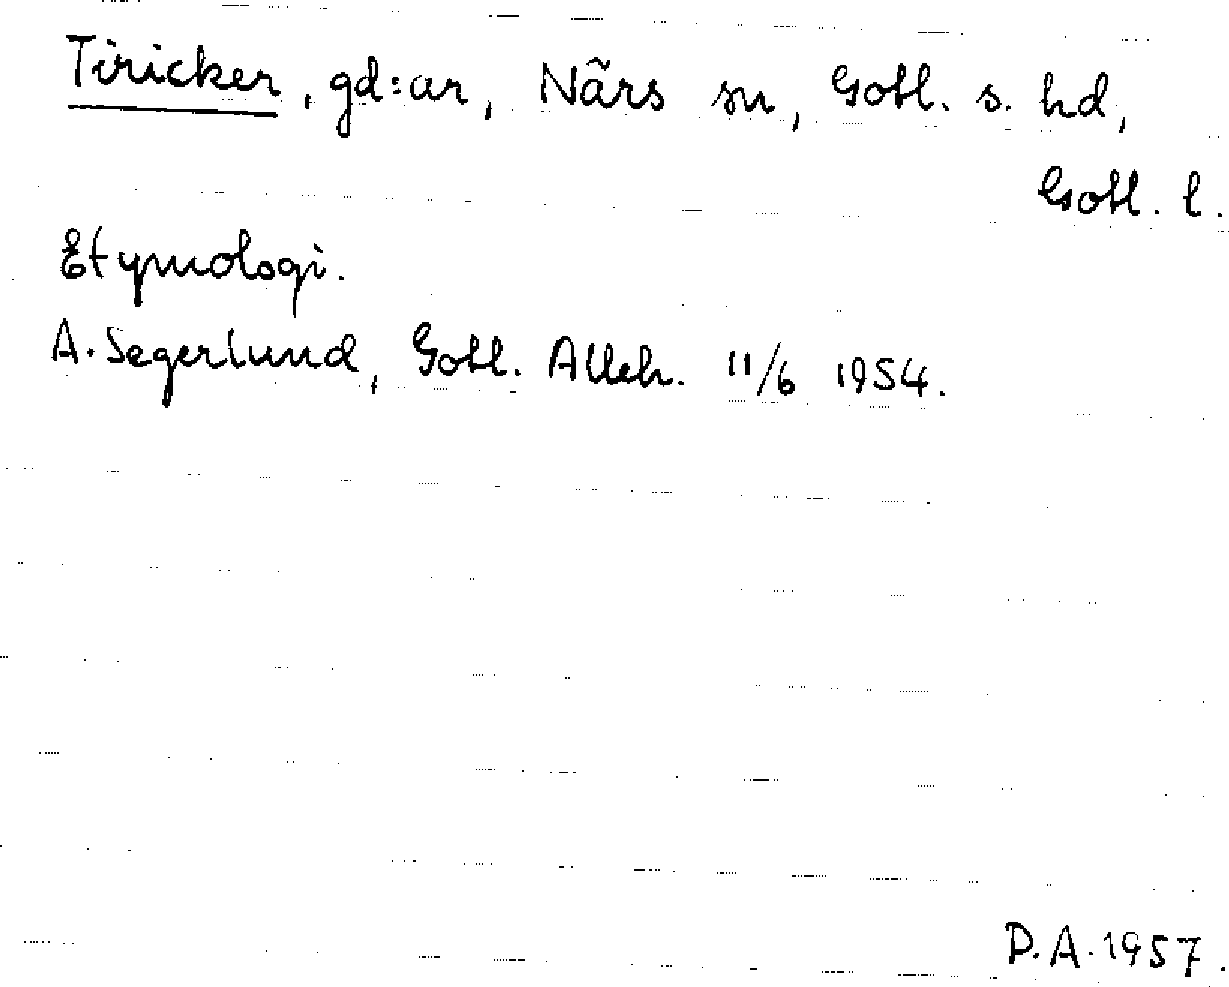 Tiricker, gd:ar, Närs sn, Gotl. s. hd,
Gotl. l.
Etymologi.
A. Segerlund, Gotl. Alleh. 11/6 1954.
D.A. 1957.